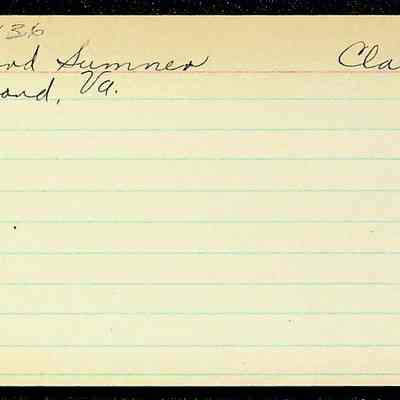 36
rd Sumner Cla
ond, Va.